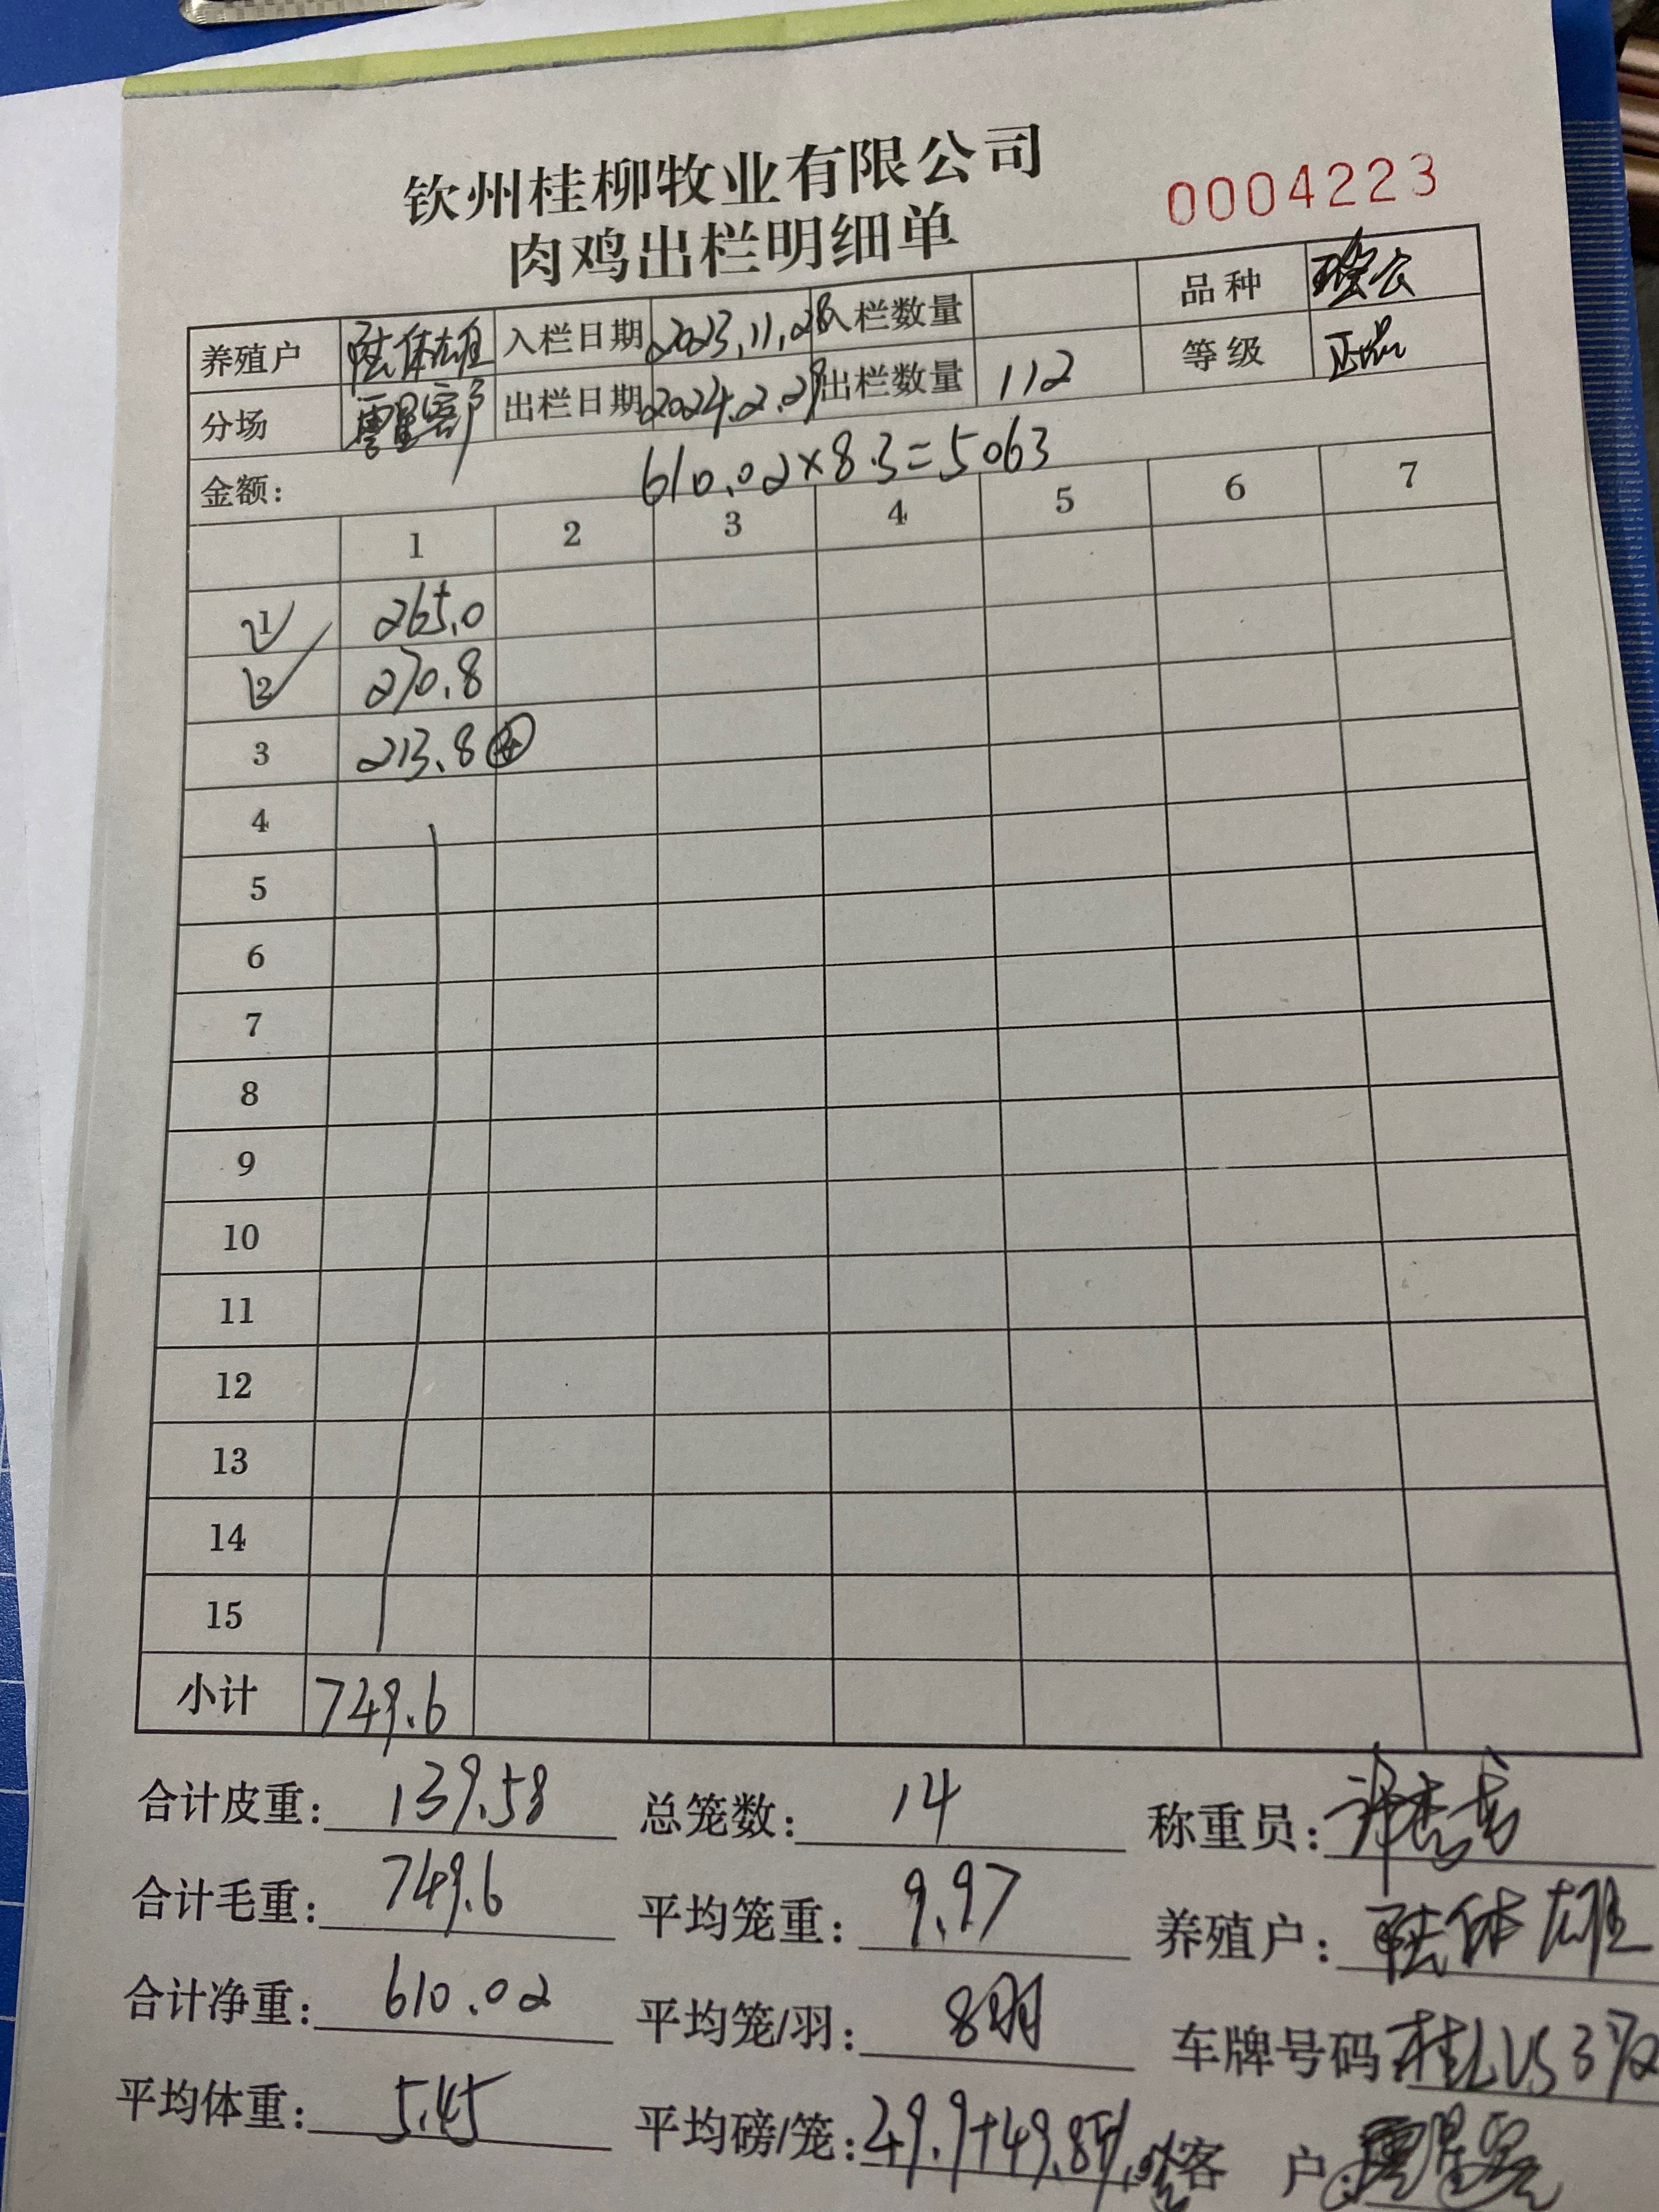 钦州桂柳牧业有限公司
0004223
肉鸡出栏明细单
养殖户 陆体雄 入栏日期 2023.11.28 入栏数量 品种
分场 出栏日期 2024.2.29 出栏数量 112 等级 正品
金额: 610.02×8.3=5063
1 2 3 4 5 6 7
1 265.0
2 270.8
3 213.8 ④
4
5
6
7
8
9
10
11
12
13
14
15
小计 749.6
合计皮重: 139.58 总笼数: 14 称重员:
合计毛重: 749.6 平均笼重: 9.97 养殖户: 陆体雄
合计净重: 610.02 平均笼/羽: 8羽 车牌号码
平均体重: 5.45 平均磅/笼: 49.9+49.8 客 户: